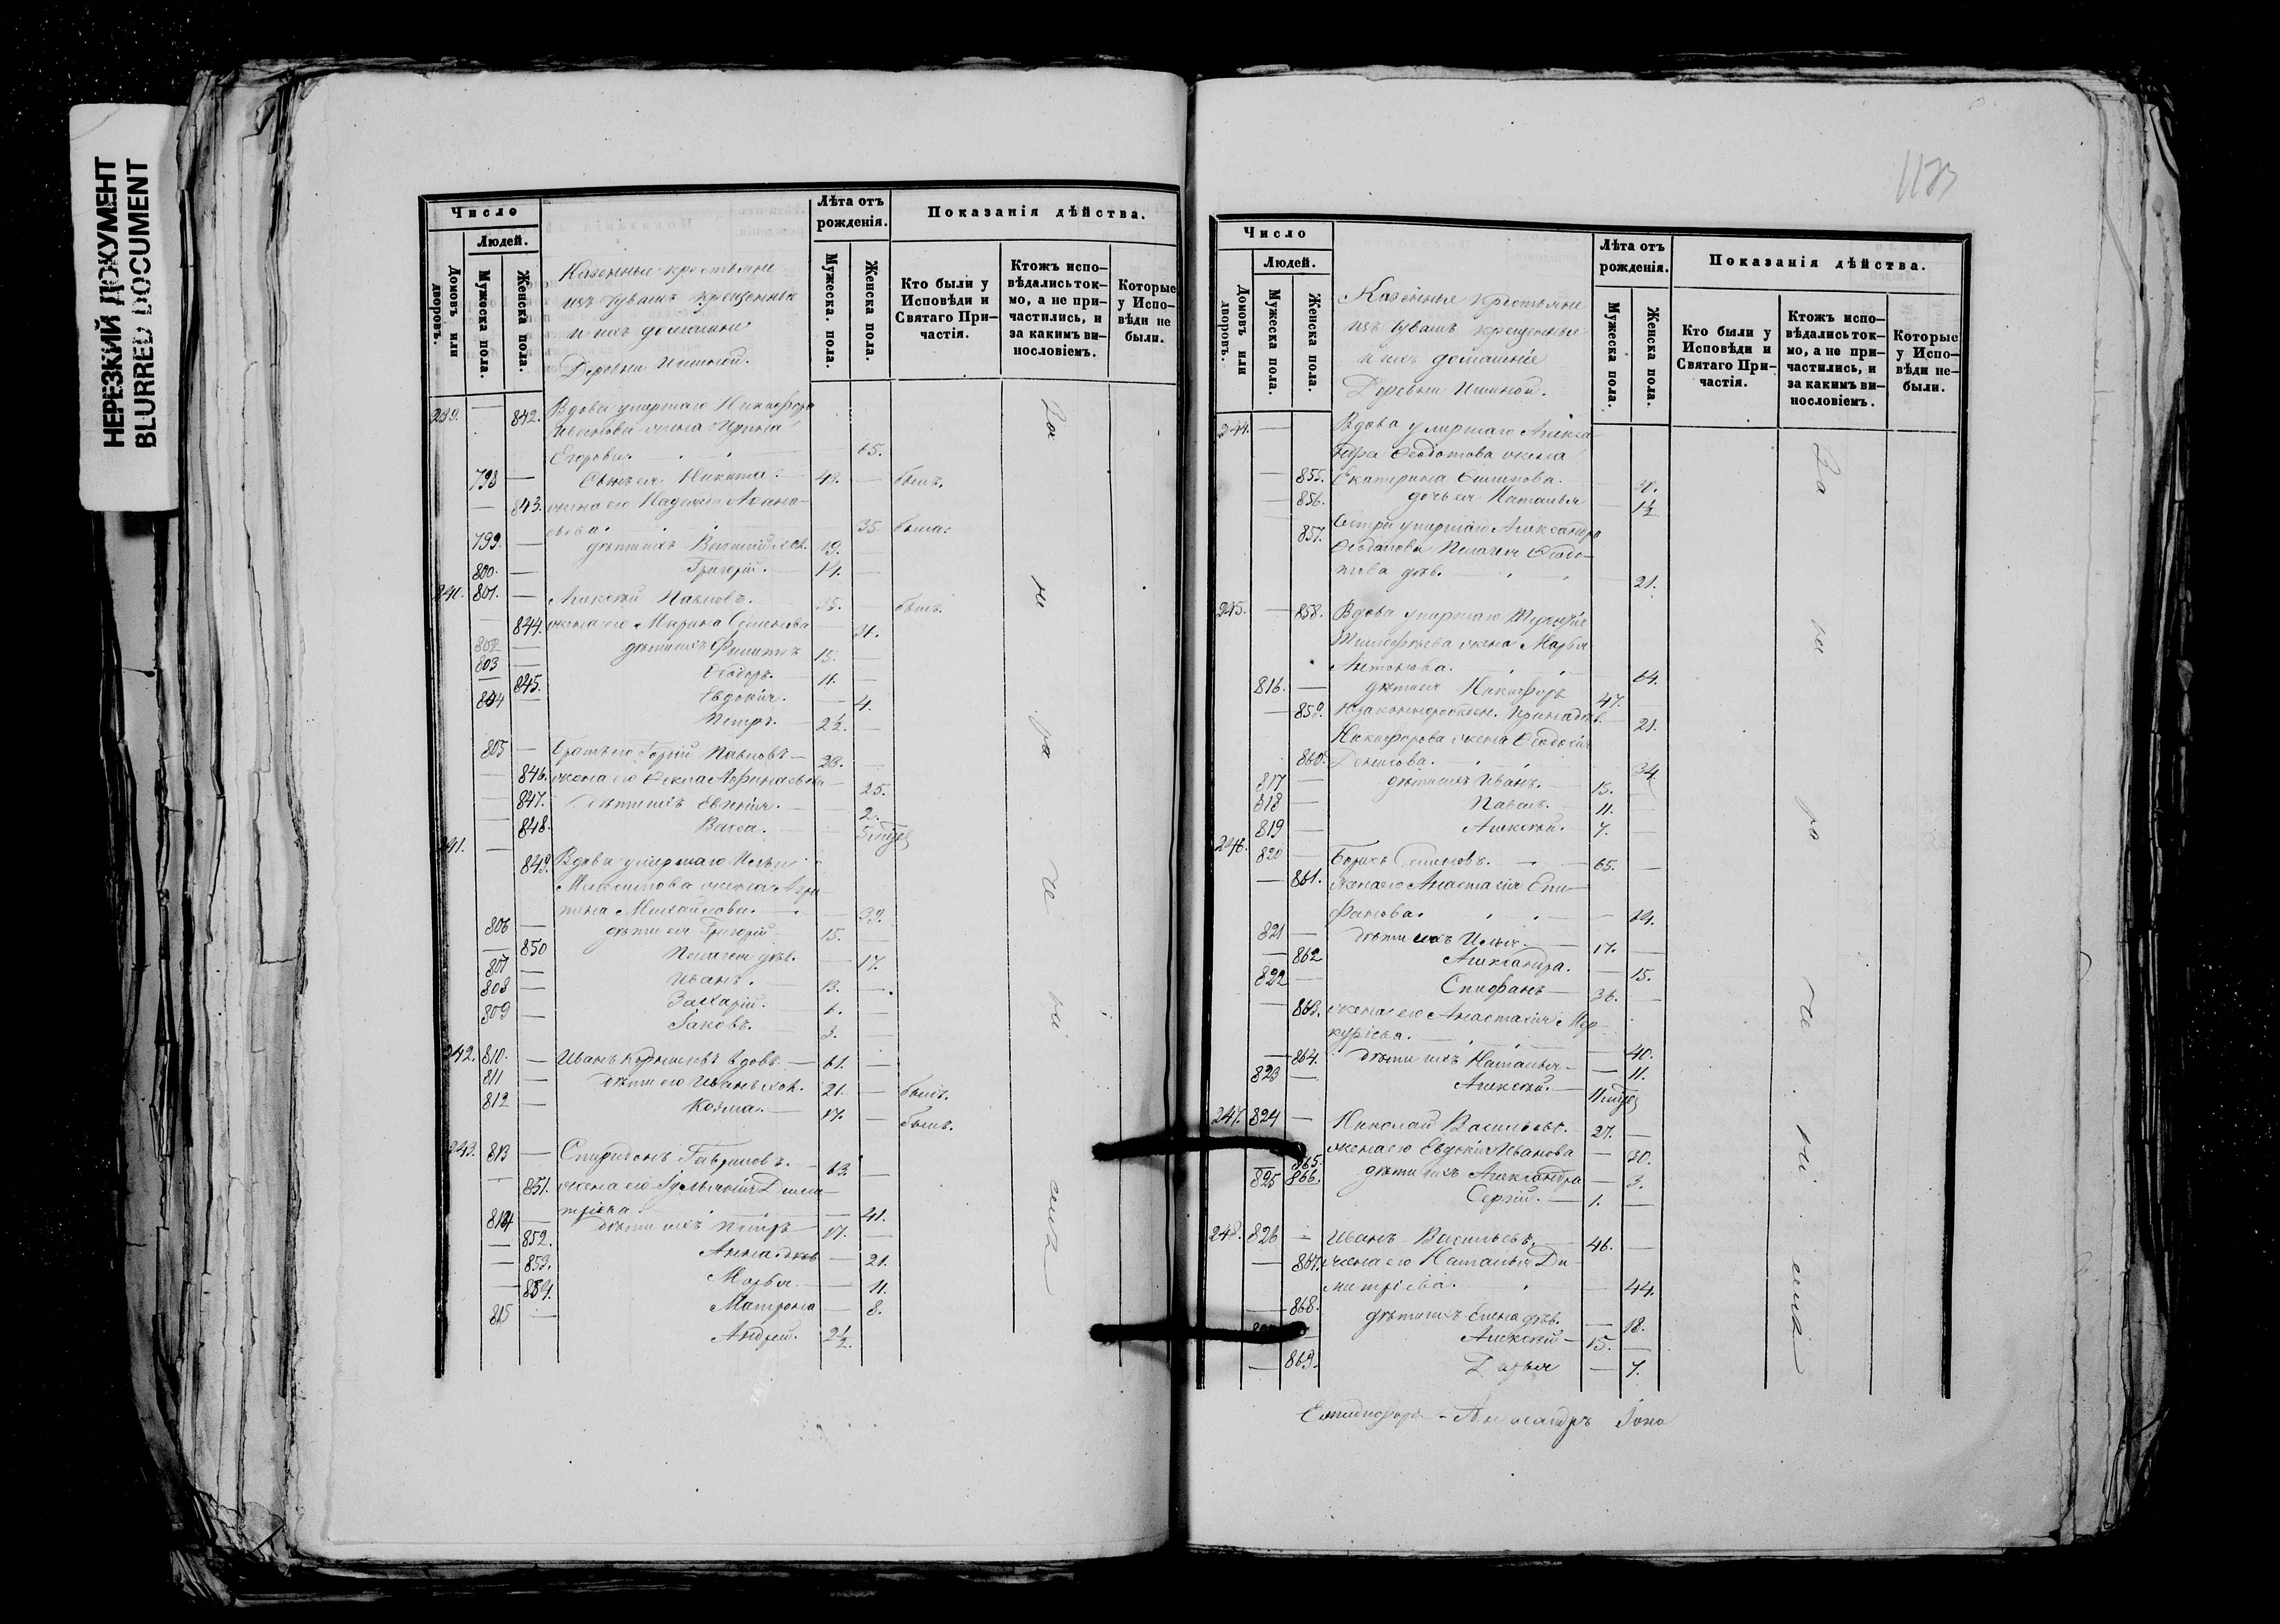 НЕРЕЗКИЙ ДОКУМЕНТ
BLURRED DOCUMENT
Число
Людей.
Домовъ или дворовъ.
Мужеска пола.
Женска пола.
Казенные крестьяне
изъ Чувашъ крещенные
и ихъ домашніе
Деревни Ишиной.
Лѣта отъ рожденія.
Мужеска. пола.
Женска пола.
Показанія дѣйства.
Кто были у Исповѣди и Святаго Причастія.
Ктожъ исповѣдались токмо, а не причастились, и за какимъ винословіемъ.
Которые у Исповѣди не были.
239. — 842. Вдова умершаго Никифора
Иванова жена Ирина
Егорова. 65.
798 — Сынъ ея Никита. 42. — былъ.
— 843. жена его Надежда Афана-
сьева. 35. была.
799. — дѣти ихъ Василій хол. 19. —
800. — Григорій. — 14. —
240. 801. — Алексѣй Павловъ. — 35. — былъ.
— 844. жена его Марина Семенова 31.
802 — дѣти ихъ Филиппъ 15. —
803 — Ѳеодоръ. — 11. —
— 845. Евдокія. — 4.
804 — Петръ. — 2½. —
805 — Братъ его Сергій Павловъ — 28. —
— 846. жена его Ѳекла Афанасьева — 25.
— 847. дѣти ихъ Евгенія. — 2.
— 848. Васса. —
241. — 849. Вдова умершаго Ильи
Максимова жена Агри-
пина Михайлова. — 39.
806 — дѣти ея Григорій 15. —
— 850 Пелагея дѣв. — 17.
807 — Иванъ. — 13. —
808 — Захарій. — 6. —
809 — Іаковъ. 3. —
242. 810. — Иванъ Корниловъ вдовъ. — 61. —
811 — дѣти его Иванъ хол. 21. — былъ.
812 — Козма. — 17. — былъ.
243. 813 — Спиридонъ Гавриловъ. — 63. —
— 851. жена его Іуліанія Дими-
тріева. — 41.
814 — дѣти ихъ Петръ 17. —
— 852. Анна дѣв — 21.
— 853. Марья — 11.
— 854. Матрона — 8.
815 — Андрей. 2½.
За не ра че ні емъ
1173
Число
Людей.
Домовъ или дворовъ.
Мужеска пола.
Женска пола.
Казенные крестьяне
изъ Чувашъ крещенные
и ихъ домашніе
Деревни Ишиной.
Лѣта отъ рожденія.
Мужеска пола.
Женска пола.
Показанія дѣйства.
Кто были у Исповѣди и Святаго Причастія.
Ктожъ исповѣдались токмо, а не причастились, и за какимъ винословіемъ.
Которые у Исповѣди не были.
244. — Вдова умершаго Алекса-
ндра Ѳеодотова жена
— 855. Екатерина Филипова. — 30.
— 856. дочь ея Наталья — 1½.
857. Сестра умершаго Александра
Ѳеодотова Пелагея Ѳеодо-
това дѣв. — 21.
245. — 858. Вдова умершаго
Тимофѣева жена Марья
Антонова. 64.
816. — дѣти ея Никифоръ 47. —
— 859. Незаконнорожден. Ирина дѣв. 21.
Никифорова жена Ѳеодосія
860. Денисова. 34.
817 — дѣти ихъ Иванъ. — 15. —
818 — Павелъ. — 11. —
819 — Алексѣй. — 7. —
246. 820 — Борисъ Семеновъ. — 65. —
— 861. жена его Анастасія Епи-
фанова. — 64.
821 — дѣти ихъ Илья — 17. —
— 862 Александра. — 15.
822 — Епифанъ — 36. —
— 863. жена его Анастасія Мер-
куріева. — 40.
— 864. дѣти ихъ Наталья — — 11.
823 — Алексѣй. —
247. 824 — Николай Васильевъ. 27. —
865. жена его Евдокія Иванова — 30.
866. дѣти ихъ Александра — 3.
825 Сергій. — 1. —
248. 826 — Иванъ Васильевъ. — 46. —
— 867. жена его Наталья Ди-
митріева. — 44.
— 868. дѣти ихъ Елена дѣв. — 18.
Алексѣй — 15. —
— 869. Дарья — 7.
За не ра че ні емъ
Александръ Іоно